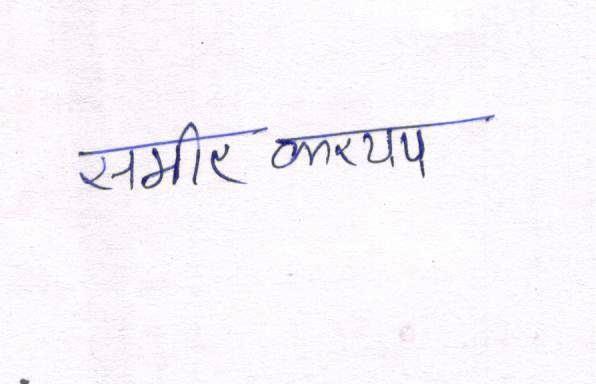 समीर कश्यप